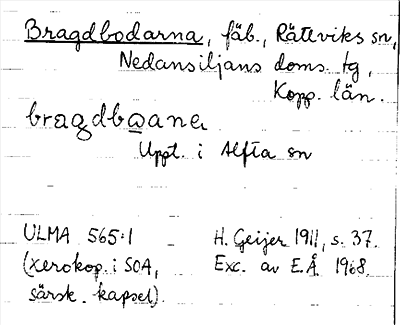 Bragdbodarna, fäb., Rättviks sn,
Nedansiljans doms. tg,
Kopp. län.
bragdboane
Uppt. i Alfta sn
ULMA 565:1 H. Geijer 1911, s. 37.
(xerokop. i SOA, Exc. av E.Å. 1968.
särsk. kapsel).